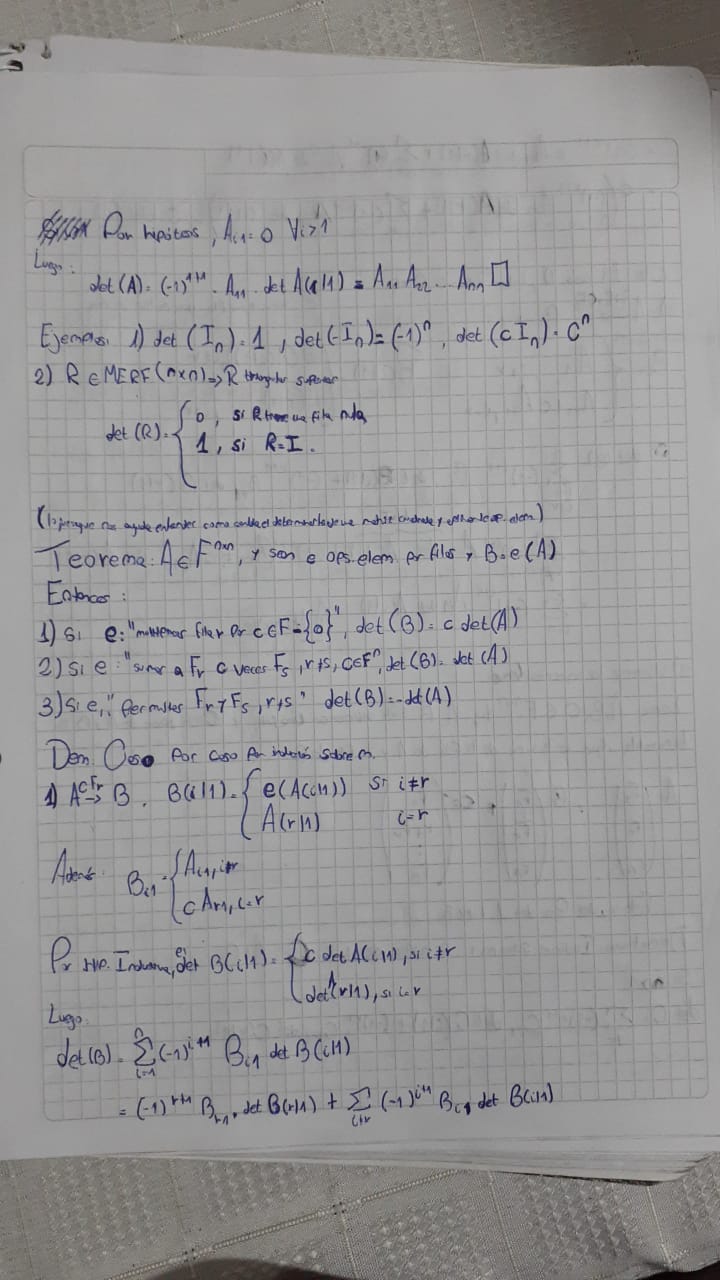 Por hipótesis, A_{i1} = 0 ∀i>1
Luego:
det(A) = (-1)^{1+1} · A_{11} · det A(1|1) = A_{11} A_{22} ... A_{nn} □
Ejemplos. 1) det (I_n) = 1, det(-I_n) = (-1)^n, det (c I_n) = c^n
2) R ∈ MERF (n×n) => R triangular superior
det (R) = { 0, si R tiene una fila nula,
1, si R = I.
como cambia el determinante de una matriz cuadrada y
Teorema: A ∈ F^{n×n}, y sean e ops. elem por filas y B = e(A)
Entonces:
1) Si e: "multiplicar fila r por c ∈ F - {0}", det(B) = c det(A)
2) Si e: "sumar a F_r c veces F_s, r≠s, c∈F", det(B) = det (A)
3) Si e: "permutes F_r y F_s, r≠s" det(B) = -det(A)
Dem. Caso por caso por inducción sobre n.
1) A →^{cF_r} B. B(i|1) = { e(A(i|1)) si i≠r
A(r|1) i=r
Además: B_{i1} = { A_{i1}, i≠r
c A_{r1}, i=r
Por HIP. Inductiva, det B(i|1) = { c det A(i|1), si i≠r
det A(r|1), si i=r
Luego:
det(B) = Σ_{i=1}^{n} (-1)^{i+1} B_{i1} det B(i|1)
= (-1)^{r+1} B_{r1} · det B(r|1) + Σ_{i≠r} (-1)^{i+1} B_{i1} det B(i|1)